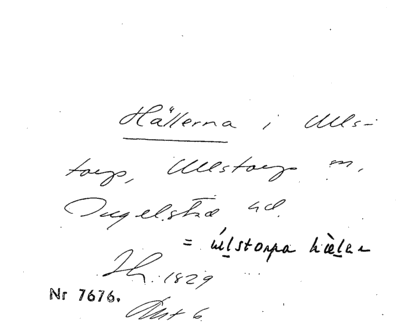 Hällerna i Ulls-
torp, Ullstorps sn,
Ingelstad hd.
= úlstorpa hælər
Ih. 1829
Nr 7676.
Akt 6